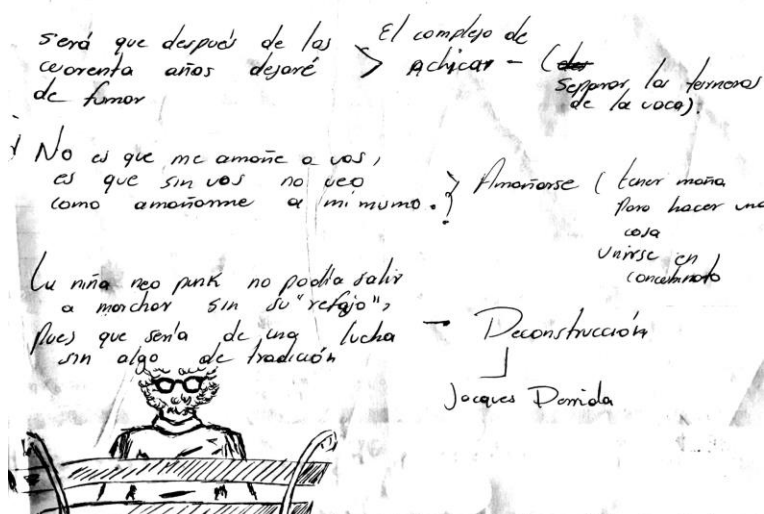 será que después de las
cuorenta años dejaré
de fumar
El complejo de
Achicar - (
Sepparar las terneras
de la vaca).
No es que me amañe a vos,
es que sin vos no veo
como amañarme a mi mismo.
Amañarse ( tener maña
Para hacer una
cosa
Unirse en
concubinato
La niña neo punk no podía salir
a marchar sin su "refajo",
Pues que sería de una lucha
sin algo de tradición
- Deconstrucción
Jacques Derrida